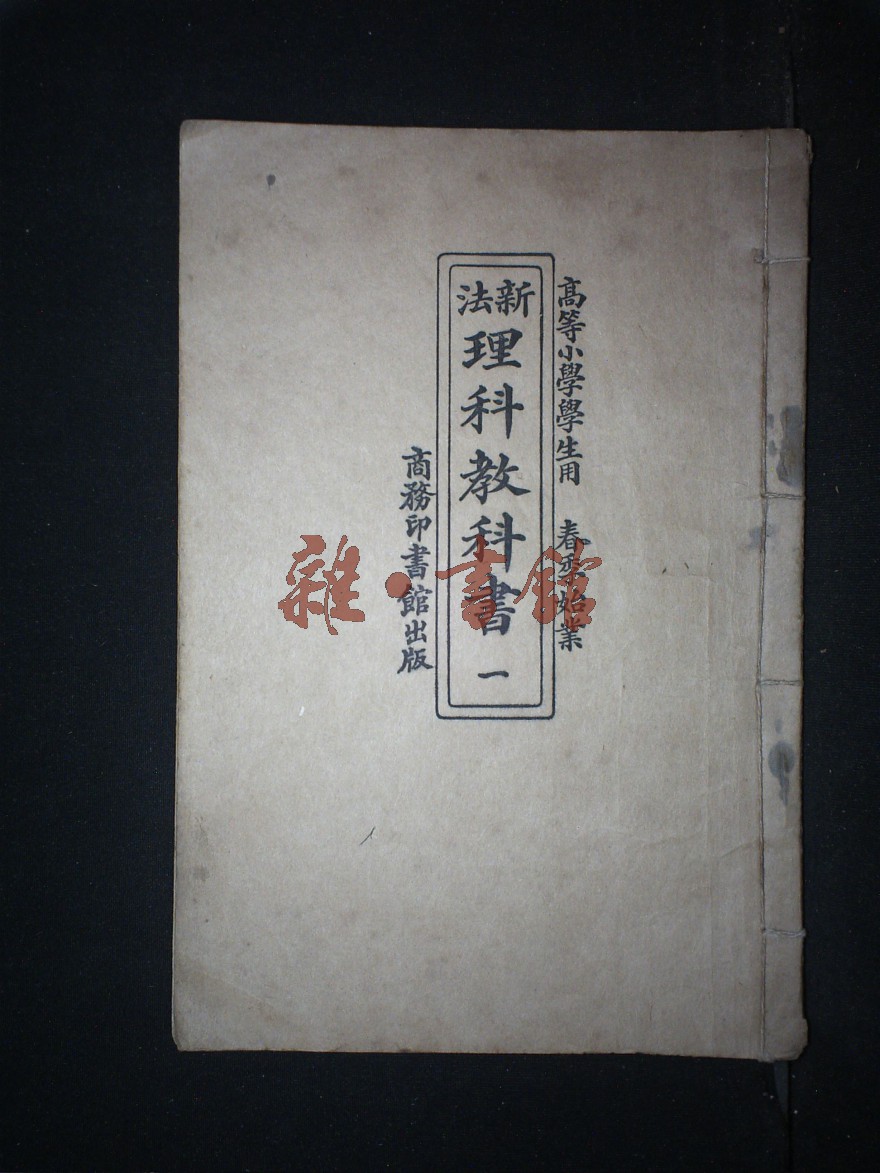 高等小學學生用 春季始業
新法
理科教科書 一
商務印書館出版
雜·書館